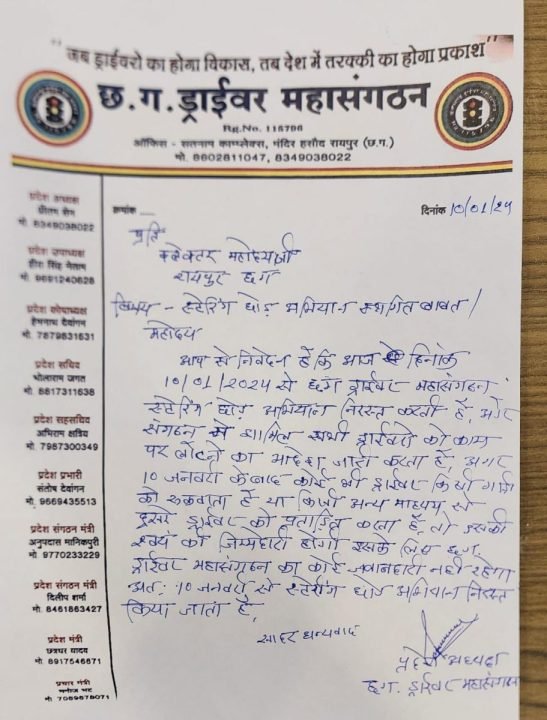 "जब ड्राईवरो का होगा विकास, तब देश में तरक्की का होगा प्रकाश"
छ.ग.ड्राईवर महासंगठन
Rg.No. 116796
ऑफिस - सतनाम काम्प्लेक्स, मंदिर हसौद रायपुर (छ.ग.)
मो. 8602811047, 8349038022
क्रमांक
दिनांक 10/01/24
प्रदेश अध्यक्ष
प्रीतम सेन
मो. 8349038022
प्रदेश उपाध्यक्ष
हीरा सिंह नेताम
मो. 9691240628
प्रदेश कोषाध्यक्ष
हेमनाथ देवांगन
मो. 7879831631
प्रदेश सचिव
भोलाराम जगत
मो. 8817311638
प्रदेश सहसचिव
अभिराम क्षत्रिय
मो. 7987300349
प्रदेश प्रभारी
संतोष देवांगन
मो. 9669435513
प्रदेश संगठन मंत्री
अनुपदास मानिकपुरी
मो. 9770233229
प्रदेश संगठन मंत्री
दिलीप शर्मा
मो. 8461863427
प्रदेश मंत्री
छत्रधर यादव
मो. 8917546671
प्रचार मंत्री
मनोज भट
मो. 7089878071
प्रति
कलेक्टर महोदय जी
रायपुर छ.ग
विषय - स्टेरिंग छोड़ अभियान स्थगित बाबत /
महोदय
आप से निवेदन है कि आज दिनांक
10/01/2024 से छ.ग ड्राईवर महासंगठन
स्टेरिंग छोड़ अभियान निरस्त करती है, और
संगठन से शामिल सभी ड्राईवरो को काम
पर लौटने का आदेश जारी करता है, अगर
10 जनवरी के बाद कोई भी ड्राईवर किसी गाड़ी
को रुकवाता है या किसी अन्य माध्यम से
दूसरे ड्राईवर को प्रताड़ित करता है, तो इसकी
स्वयं की जिम्मेदारी होगी इसके लिए छ.ग.
ड्राईवर महासंगठन का कोई जवाबदारी नही रहेगा
अतः 10 जनवरी से स्टेरिंग छोड़ अभियान निरस्त
किया जाता है,
सादर धन्यवाद
प्रदेश अध्यक्ष
छ.ग. ड्राईवर महासंगठन